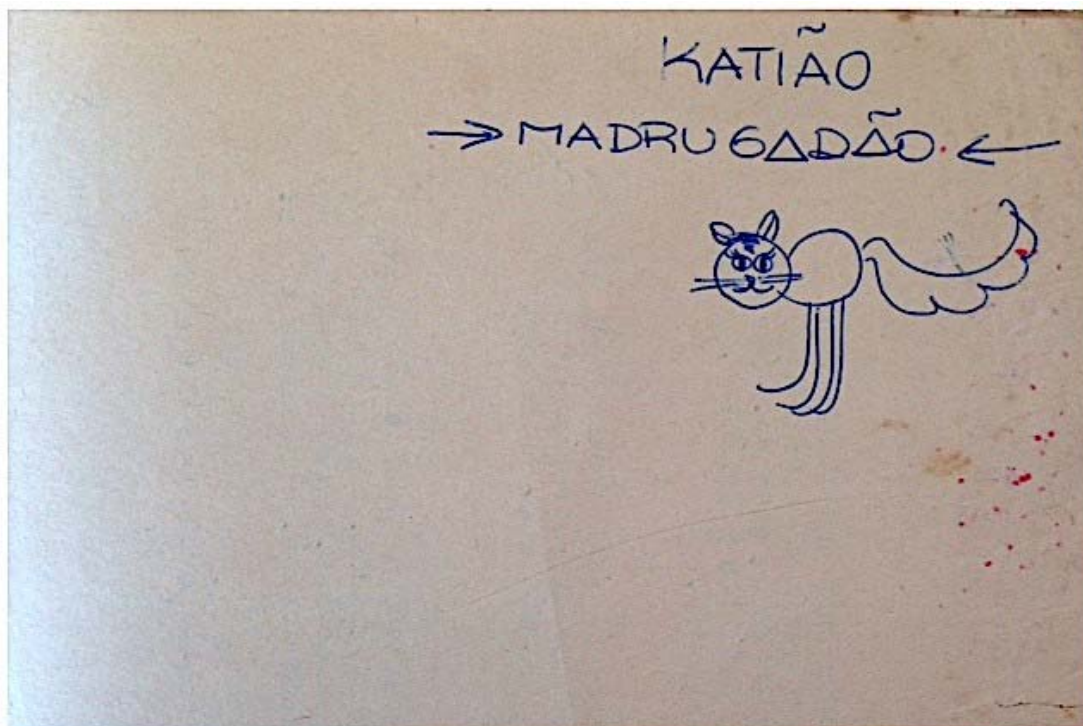 KATIÃO
→ MADRUGADÃO ←